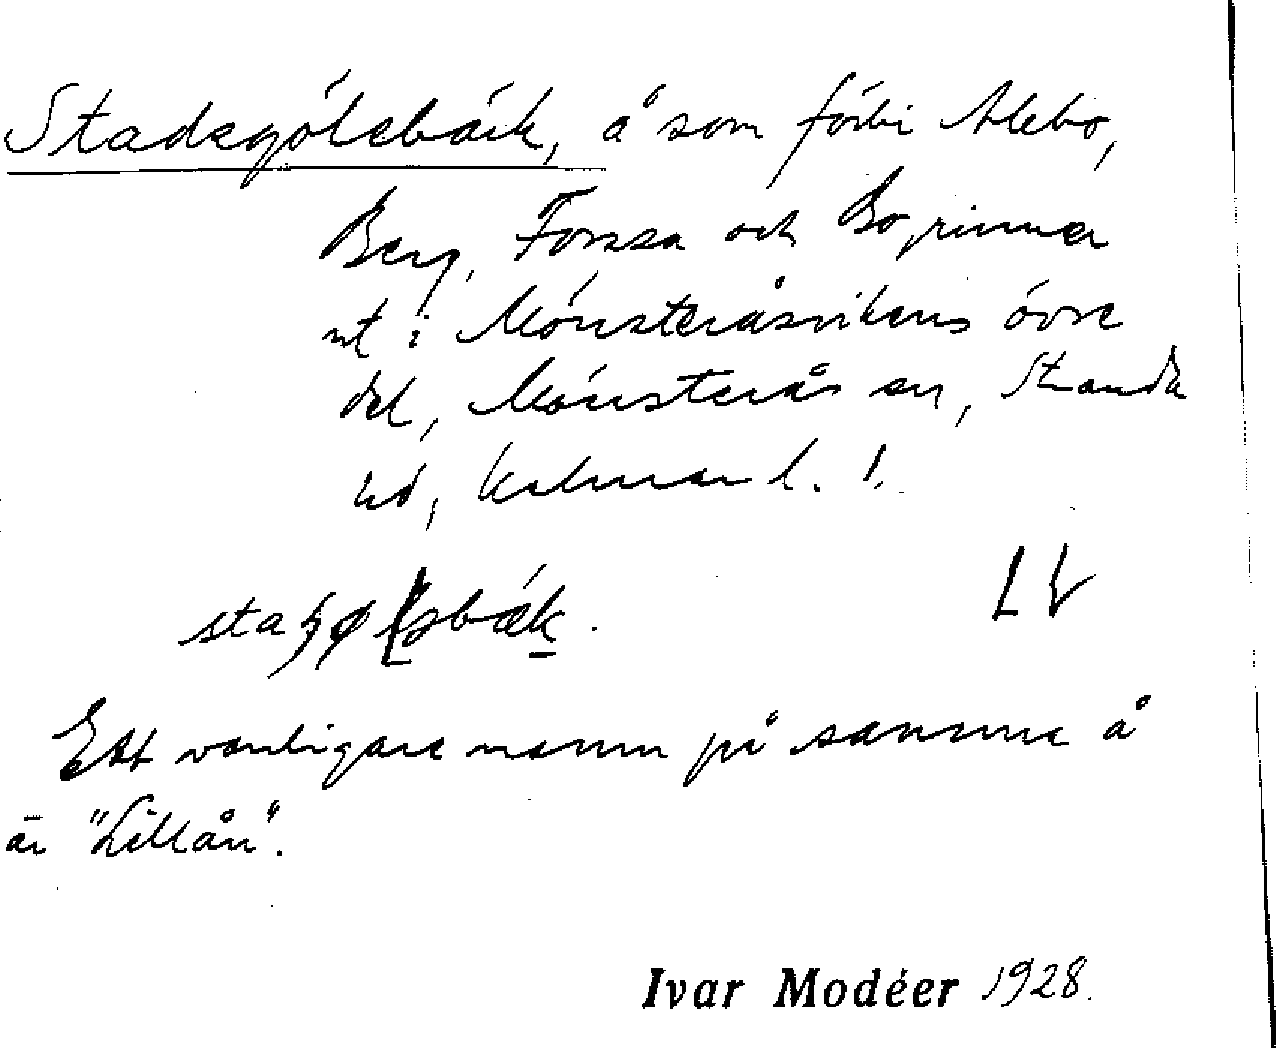 Stadegölebäck, å som förbi Alebo,
Berg, Forssa och Bo, rinner
ut i Mönsteråsvikens övre
del, Mönsterås sn, Stranda
hd, Kalmar l. 1.
LV
Ett vanligare namn på samma å
är "Lillån".
Ivar Modéer 1928.